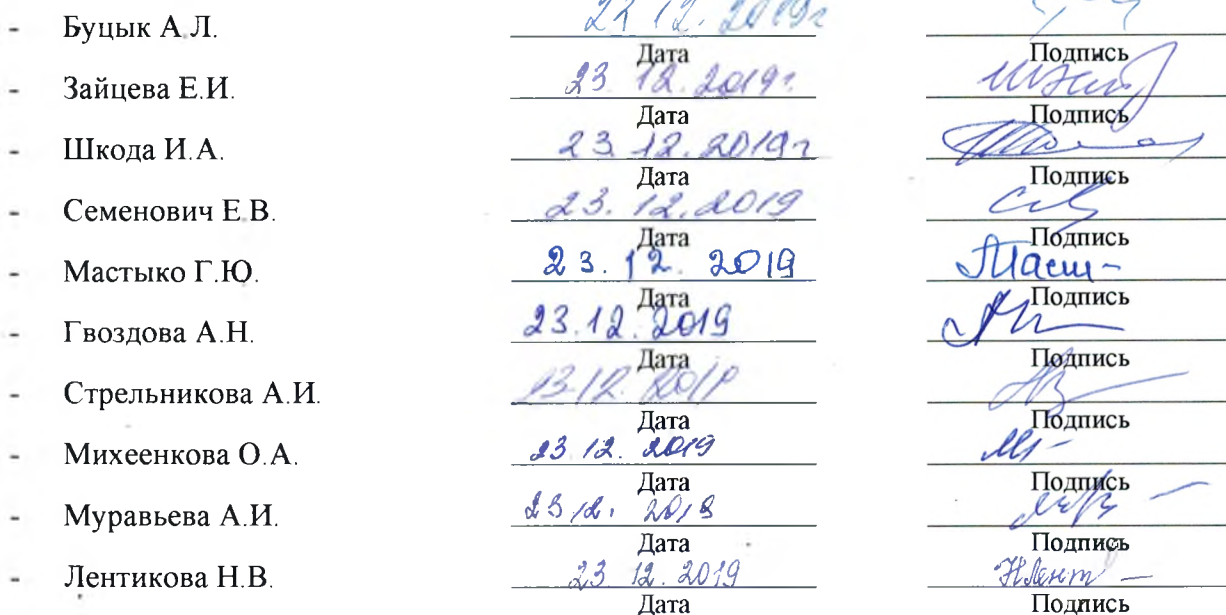 - Буцык А.Л. 23 12. 2019г
Дата Подпись
- Зайцева Е.И. 23 12. 2019г.
Дата Подпись
- Шкода И.А. 23.12.2019г
Дата Подпись
- Семенович Е.В. 23. 12. 2019
Дата Подпись
- Мастыко Г.Ю. 23. 12. 2019
Дата Подпись
- Гвоздова А.Н. 23.12.2019
Дата Подпись
- Стрельникова А.И.
Дата Подпись
- Михеенкова О.А. 23.12. 2019
Дата Подпись
- Муравьева А.И. 23.12. 2019
Дата Подпись
- Лентикова Н.В. 23 12. 2019 НЛент
Дата Подпись